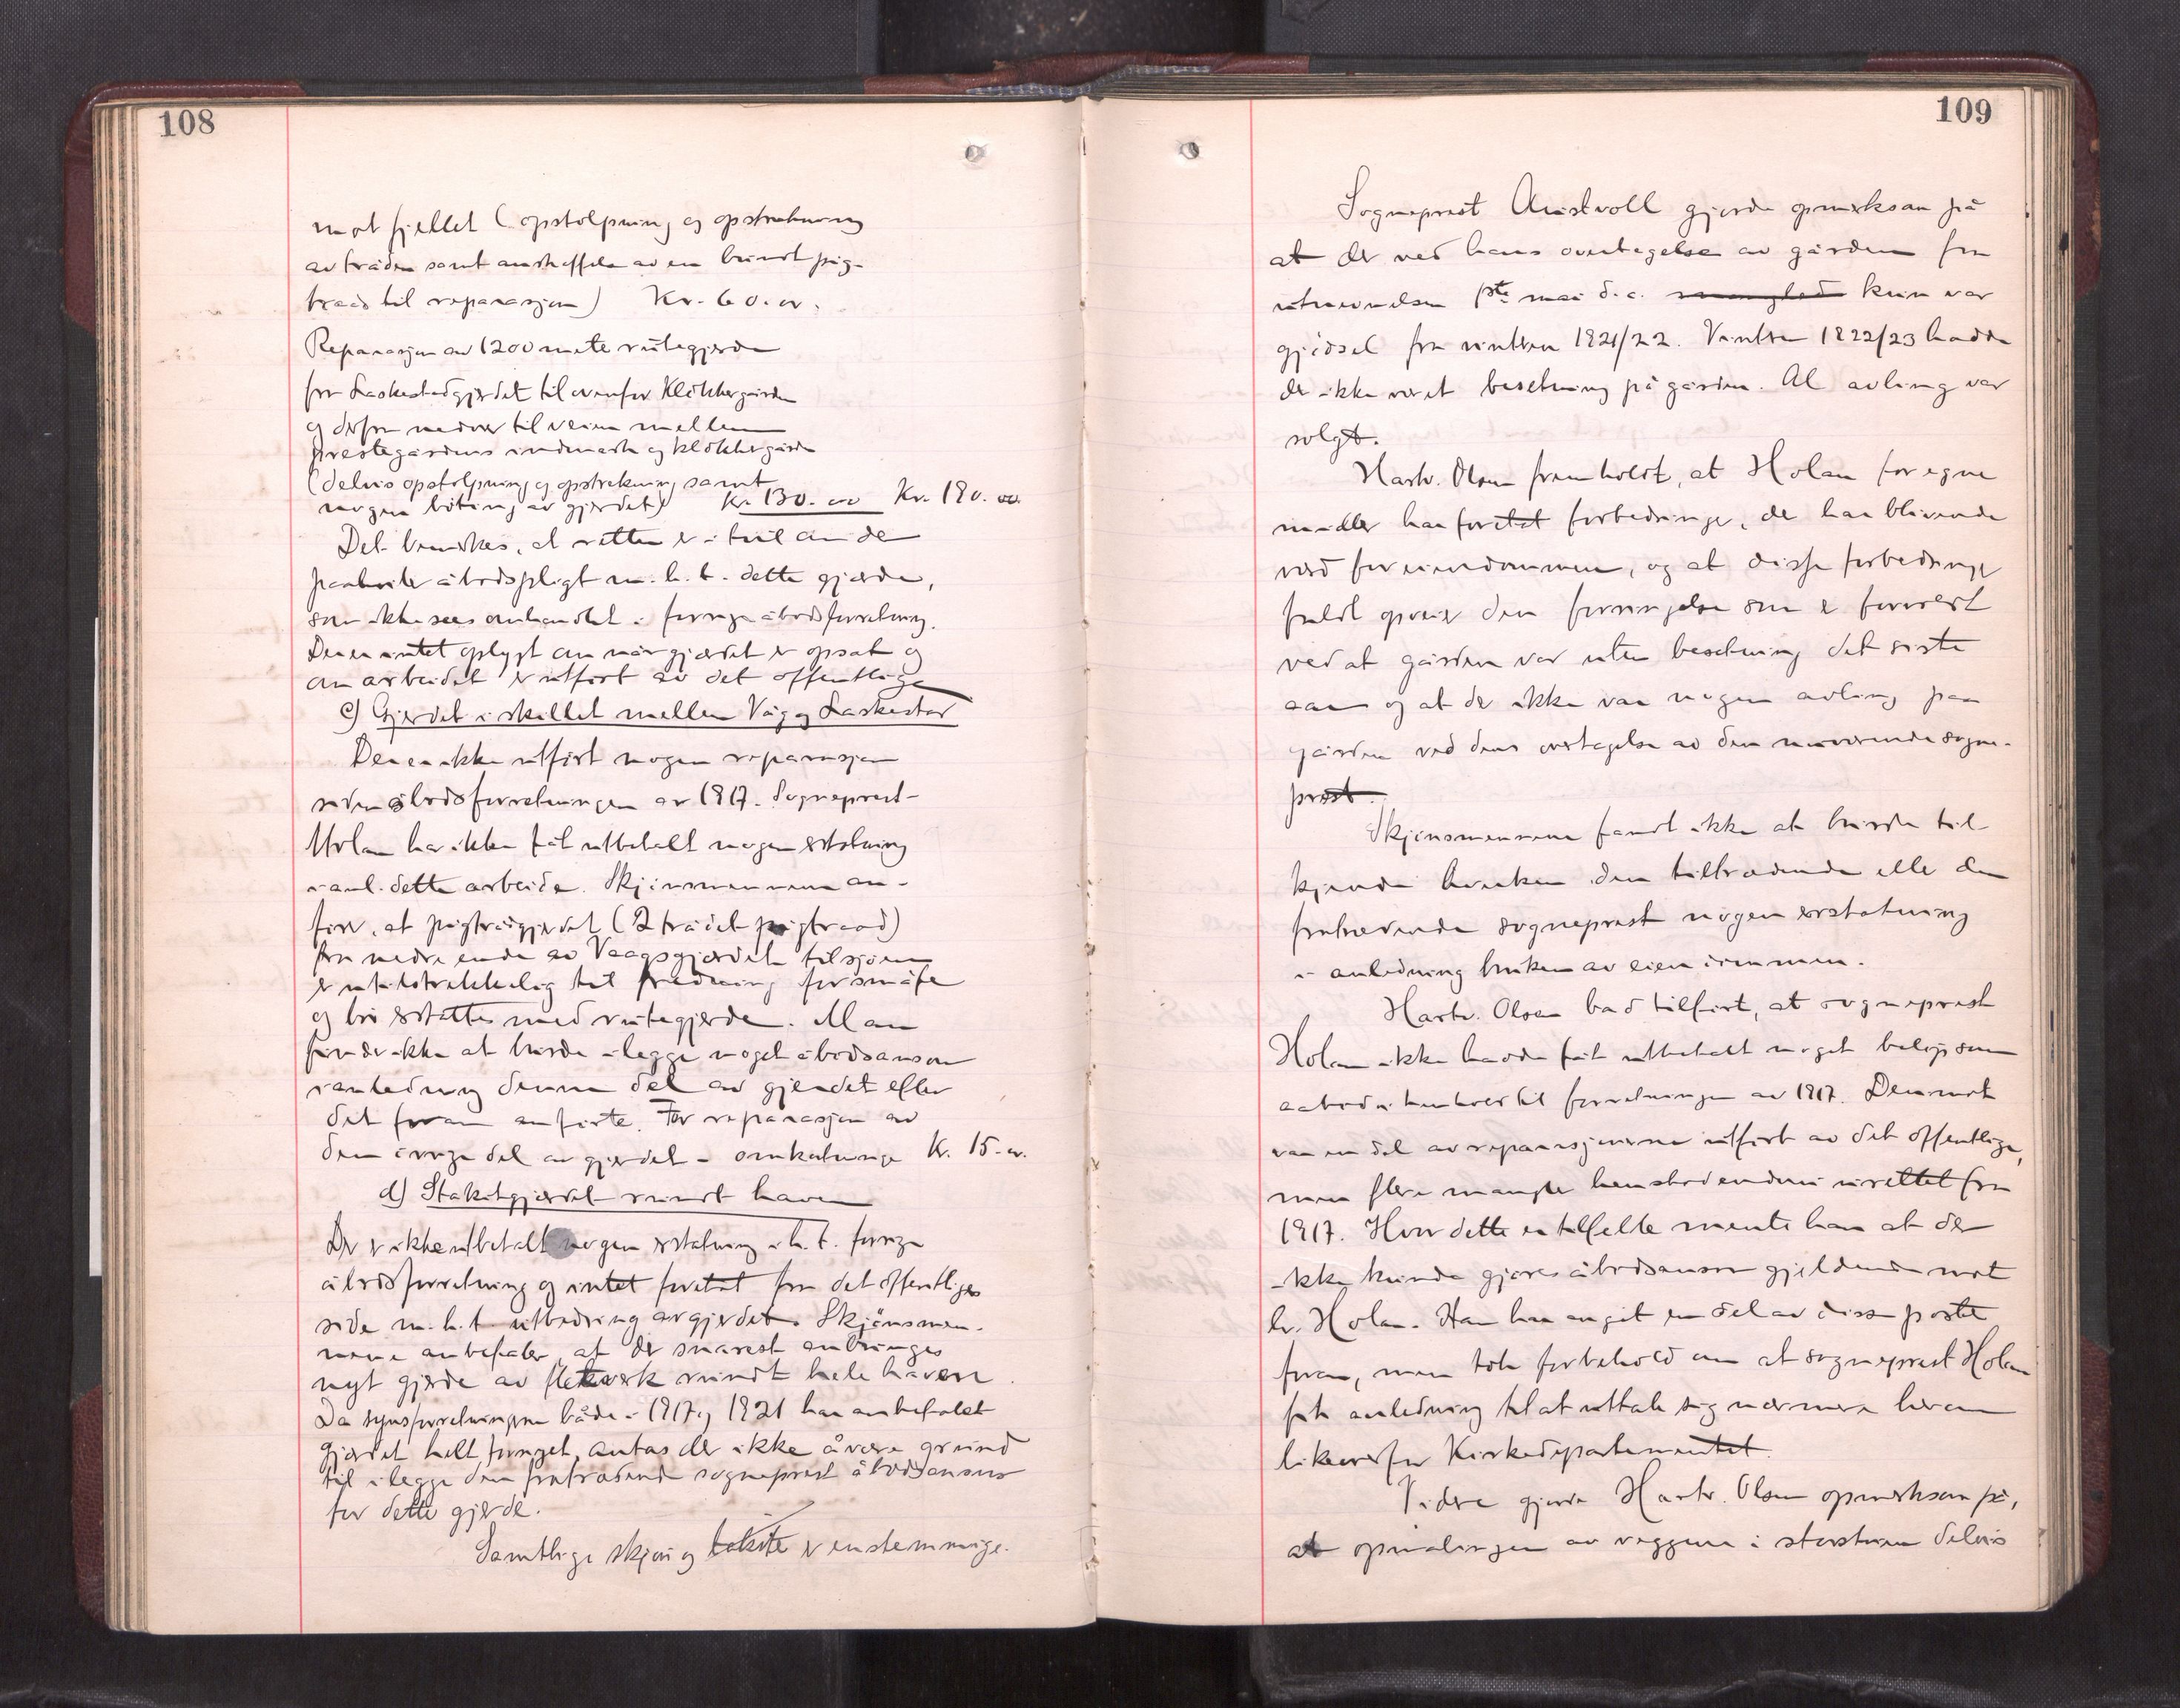 108
mot fjellet (opstolpning og opstrekning
av tråden samt anskaffelse av en bundt pig-
traad til reparasjon) Kr. 60.00.
Reparasjon av 1200 meter rutegjerde
fra Laskestadgjerdet til ovenfor Klökkergården
og derfra nedover til veien mellem
prestegårdens indmark og klökkergården
(delvis opstolpning og opstrekning samt
nogen böting av gjerdet) Kr. 130.00 Kr. 190.00
Det bemerkes, at retten er i tvil om der
paahviler åbodspligt m.h.t. dette gjerde,
som ikke sees omhandlet i forrige åbodsforretning.
Der er intet oplyst om når gjerdet er opsat og
om arbeidet er utfört av det offentlige
c) Gjerdet i skillet mellem Våg og Laskestad
Der er ikke utfört nogen reparasjon
siden åbodsforretningen av 1917. Sogneprest
Holan har ikke fåt utbetalt nogen erstatning
i anl. dette arbeide. Skjönsmennene an-
förer, at pigtrådgjerdet (2 trådet pigtraad)
fra nedre ende av Vaagsgjerdet til sjöen
er utilstrekkelig til fredning for småfe
og bör erstattes med rutegjerde. Man
finder ikke at burde ilegge noget åbodsansvar
i anledning denne del av gjerdet efter
det foran anförte. For reparasjon av
den övrige del av gjerdet - omkostninger Kr. 15.00.
d) Stakitgjerdet rundt haven
Der er ikke utbetalt nogen erstatning i h.t. forrige
åbodsforretning og intet foretat fra det offentliges
side m.h.t. utbedring av gjerdet. Skjönsmen-
nene anbefaler, at der snarest anbringes
nyt gjerde av fletverk rundt hele haven.
Da synsforretningene både i 1917 og 1921 har anbefalet
gjerdet helt fornyet, antas der ikke å være grund
til å ilegge den fratrædende sogneprest åbodsansvar
for dette gjerde.
Samtlige skjön og takster er enstemmige.
109
Sogneprest Austvoll gjorde opmerksom på
at der ved hans overtagelse av gården fra
utnevnelsen 1ste mai d.å. manglede kun var
gjödsel fra vinteren 1921/22. Vinteren 1922/23 hadde
der ikke været besetning på gården. Al avling var
solgt.
Hartv. Olsen fremholdt, at Holan for egne
midler har foretat forbedringer, der har blivende
verd for eiendommen, og at disse forbedringer
fuldt opveier den forringelse som er forvoldt
ved at gården var uten besetning det siste
aar og at der ikke var nogen avling paa
gården ved dens overtagelse av den nuværende sogne-
prest.
Skjönsmennene fandt ikke at burde til-
kjende hverken den tiltrædende eller den
fratrædende sogneprest nogen erstatning
i anledning bruken av eiendommen.
Hartv. Olsen bad tilfört, at sogneprest
Holan ikke hadde fåt utbetalt noget belöp som
aabod i henhold til forretningen av 1917. Derimot
var en del av reparasjonerne utfört av det offentlige,
men flere mangler henstod endnu urettet fra
1917. Hvor dette er tilfelle mente han at der
ikke kunde gjöres åbodsansvar gjeldende mot
hr. Holan. Han har angit en del av disse poster
foran, men tok forbehold om at sogneprest Holan
fik anledning til at uttale sig nærmere herom
likeoverfor Kirkedepartementet.
Videre gjorde Hartv. Olsen opmerksom på,
at opmalingen av veggene i storstuen delvis